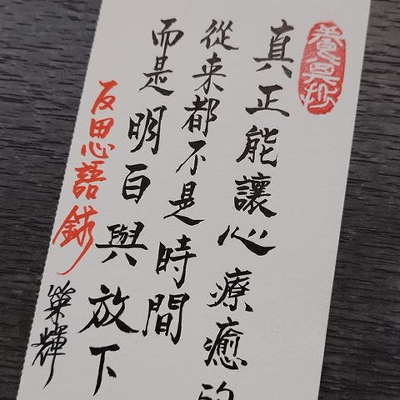 真正能讓心療癒的
從来都不是時間
而是明白與放下
反思語錄
榮輝